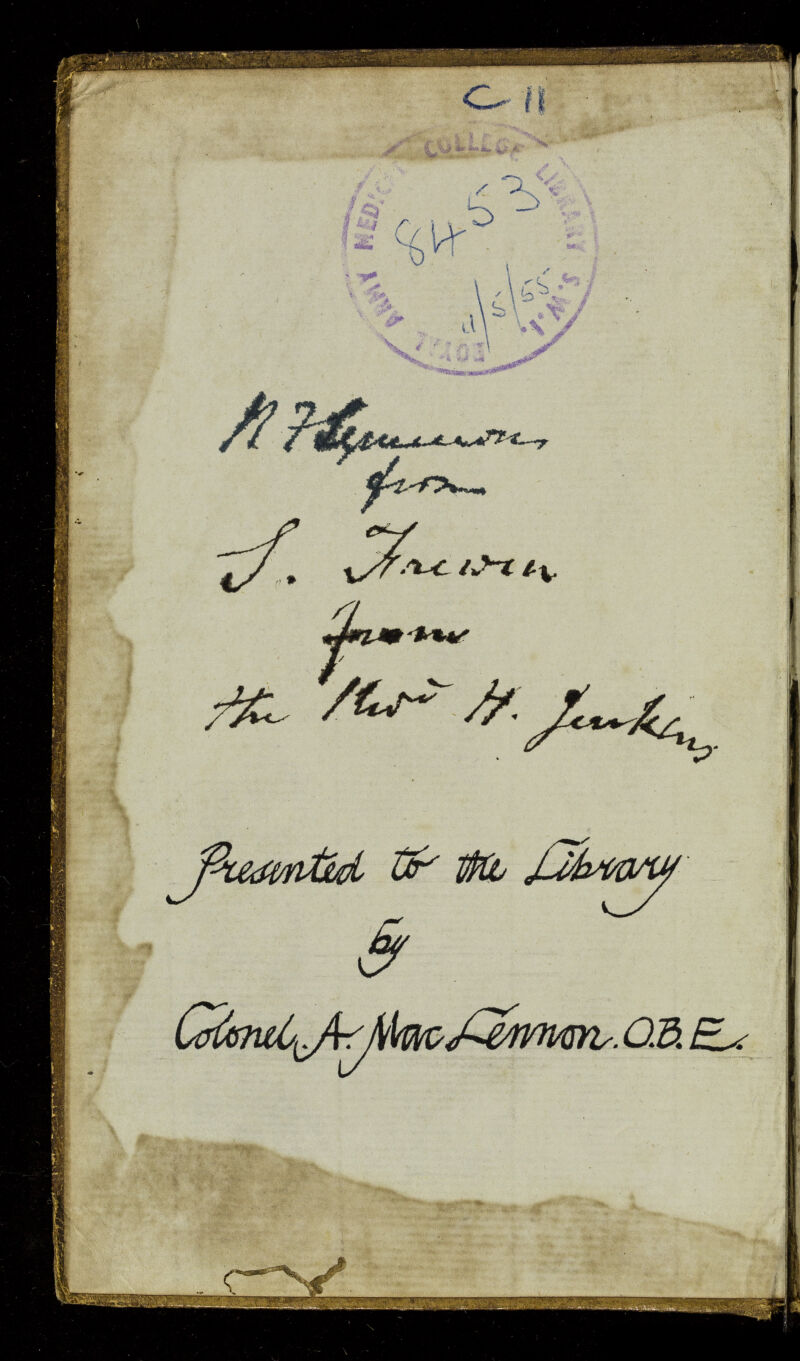 C 11
ROYAL ARMY MEDICAL COLLEGE LIBRARY S.W.1.
8453
11/5/55
N F Symmons
from
S. Frewen
from
the Revd H. Jenkins
Presented to the Library
by
Colonel. A. MacLennon. O.B.E.